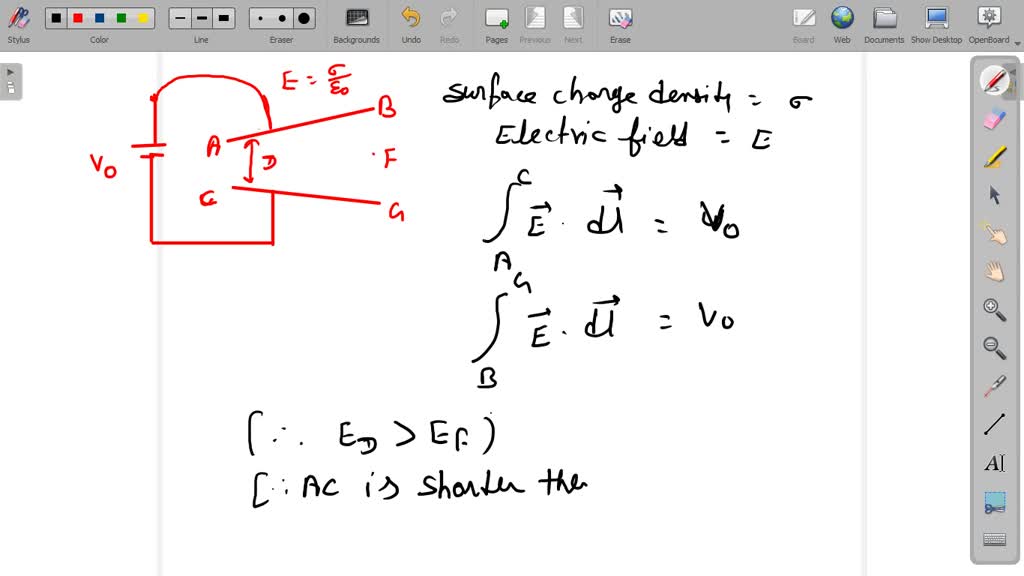 Stylus
Color
Line
Eraser
Backgrounds
Undo
Redo
Pages
Previous
Next
Erase
Board
Web
Documents
Show Desktop
OpenBoard
E = σ/ε0
B
A
D
F
V0
C
G
surface charge density = σ
Electric field = E
∫ A C E⃗ . dl⃗ = V0
∫ B G E⃗ . dl⃗ = V0
(∴ ED > EF)
[∵ AC is shorter the